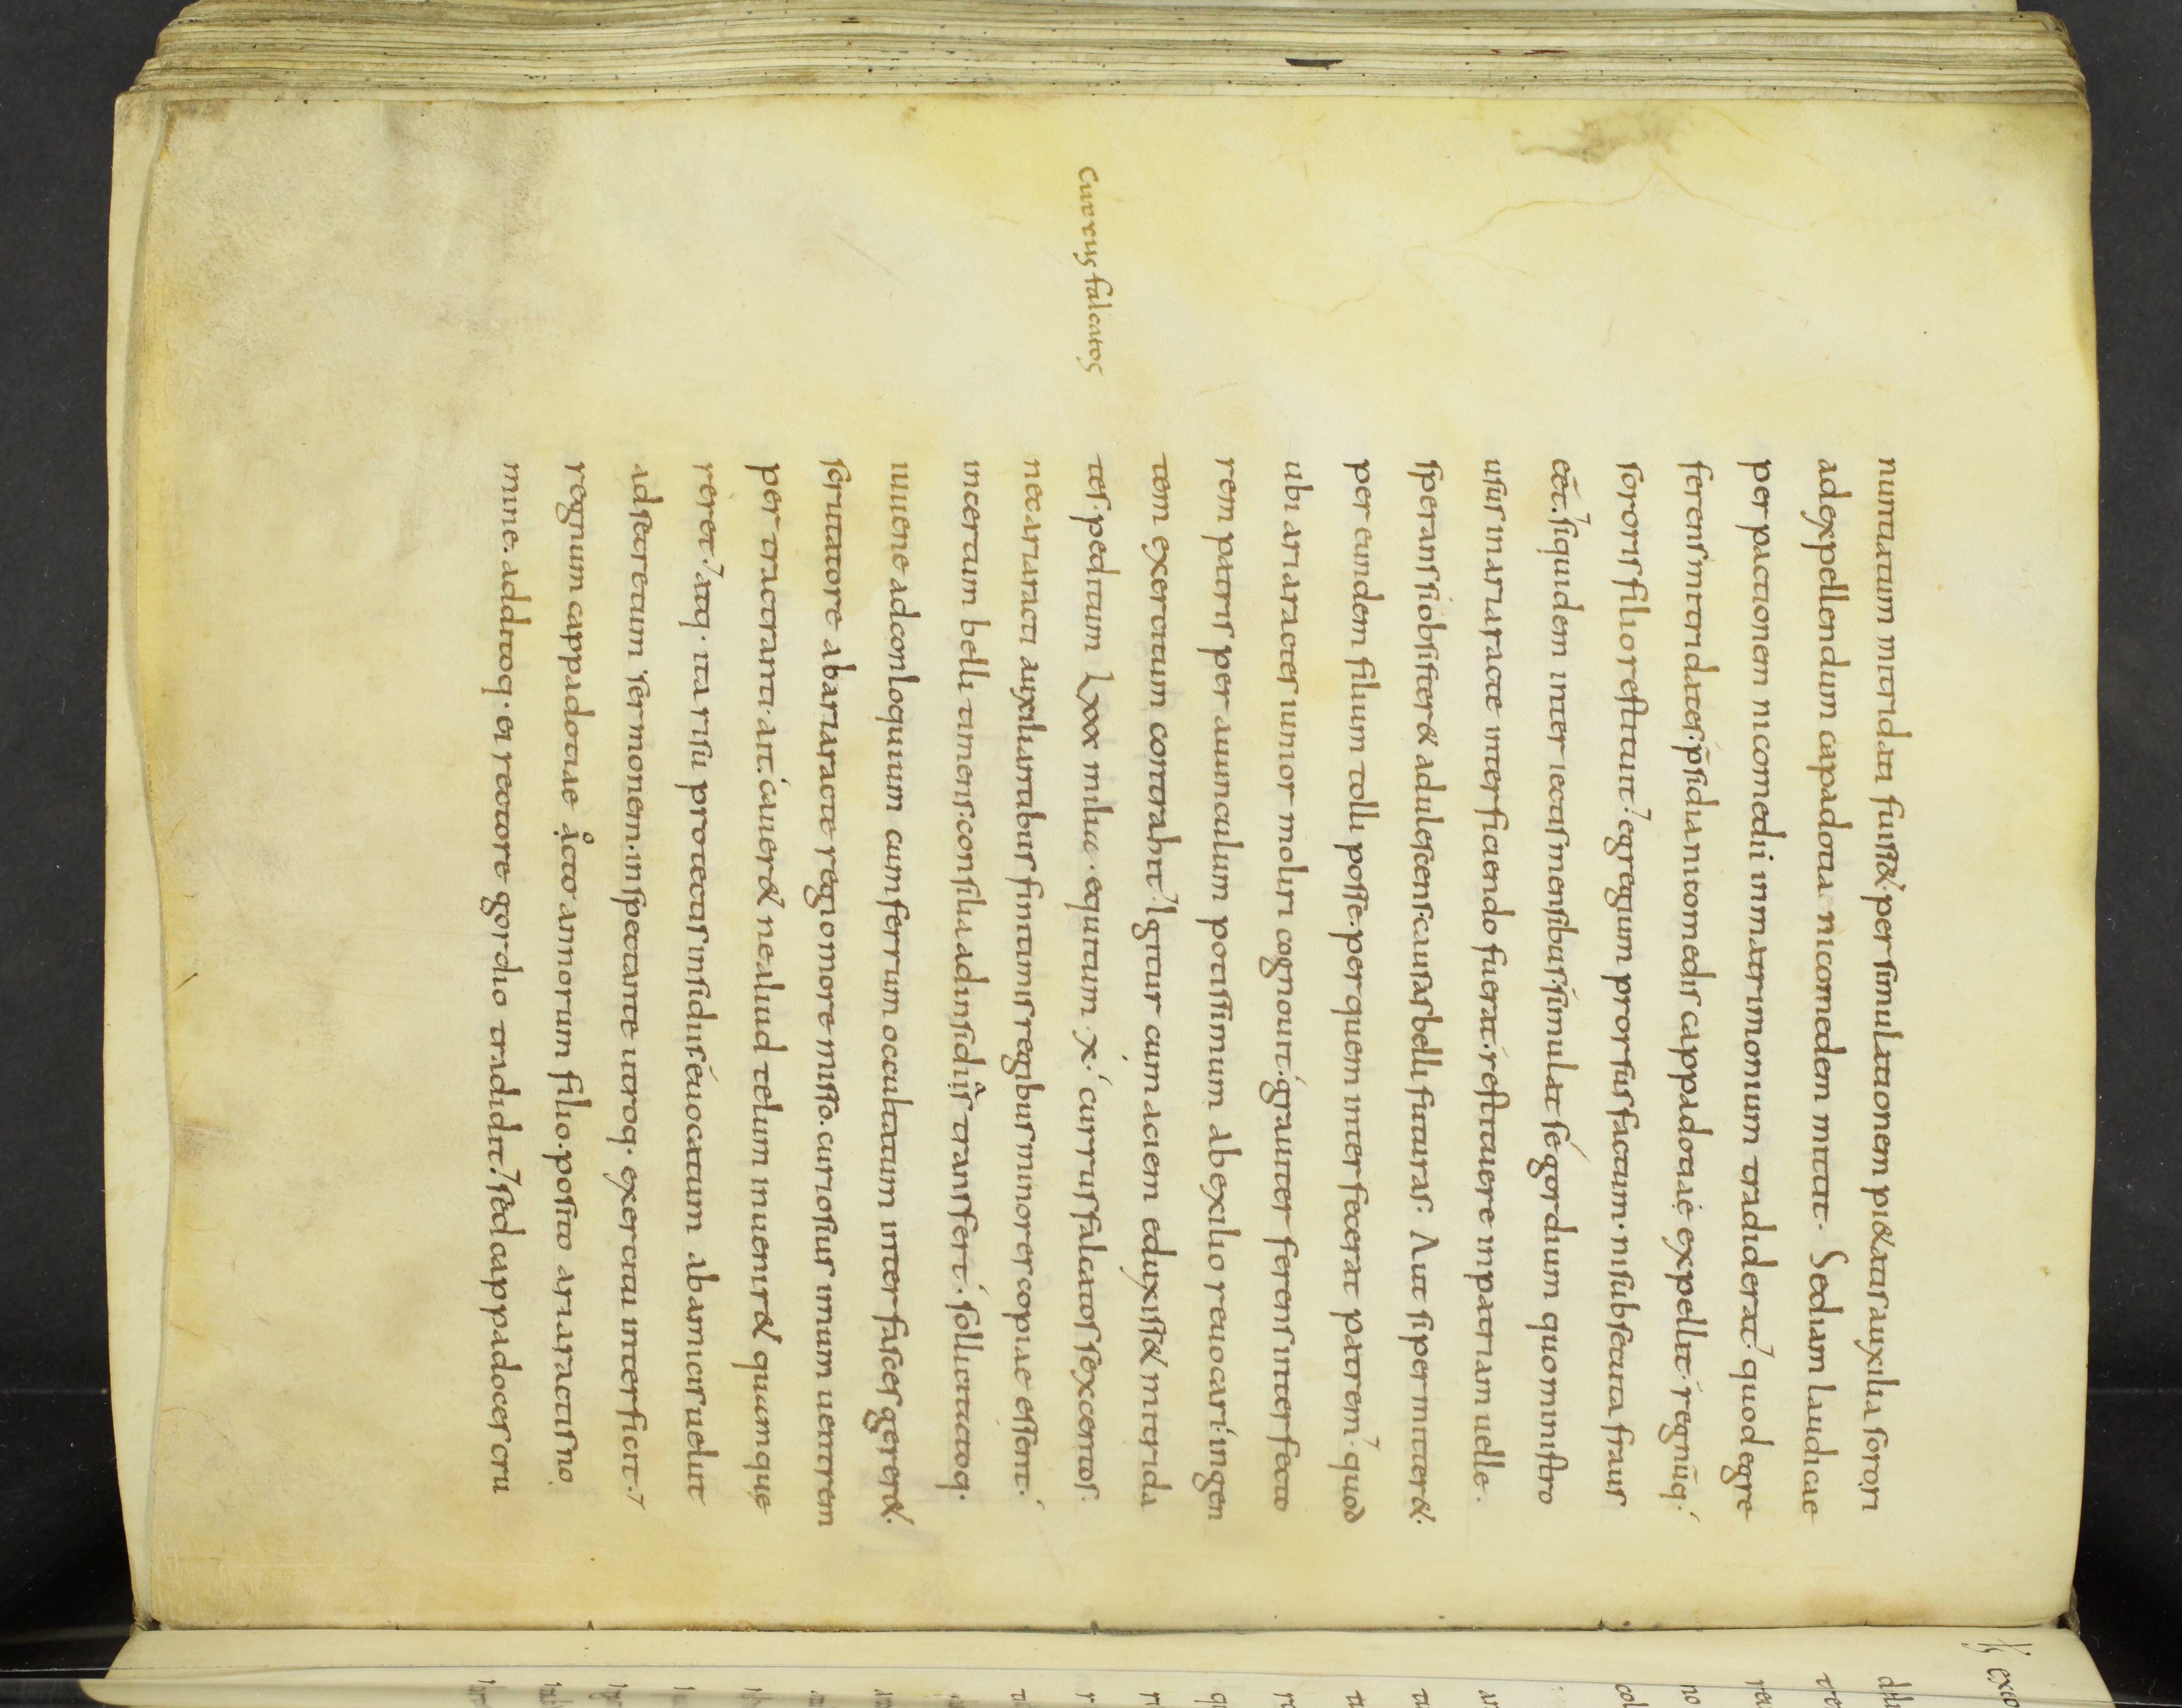 nuntiatum mitridati fuiss&. per simulationem pi&atis auxilia sorori
ad expellendum capadocia nicomedem mittit. Sed iam laudicae
per pactionem nicomedii in matrimonium tradiderat. quod egre
ferens mitridates. p̄sidia nicomedis cappadociae expellit. regnūq.
sororis filio restituit. egregium prorsus factum. ni subsecuta fraus
eēt. siquidem inter iectis mensibus. simulat se gordium quo ministro
usus in ariaracte interficiendo fuerat. restituere in patriam uelle.
sperans si obsister& adulescens. causas belli futuras. Aut si permitter&.
per eundem filium tolli posse. per quem interfecerat patrem. quod
ubi ariaractes iunior moliri cognouit. grauiter ferens interfecto
rem patris per auunculum potissimum ab exilio reuocari. ingen
tem exercitum contrahit. Igitur cum aciem eduxiss& mitrida
tes. peditum Lxxx milia. equitum .x. currus falcatos sexcentos.
nec ariaracti auxiliantibus finitimis regibus minores copiae essent.
incertum belli timens. consilia ad insidiis transfert. sollicitatoq.
iuuene ad conloquium cum ferrum occultatum inter fasces gerer&.
scrutatore ab ariaracte regio more misso. curiosius imum uentrem
per tractanti. ait. cauer& ne aliud telum inuenir& quam que
reret. atq. ita risu protectis insidiis. euocatum ab amicis uelut
ad secretum sermonem. inspectante utroq. exercitu interficit.
regnum cappadociae acto annorum filio. posito ariaractis no
mine. additoq. ei rectore gordio tradidit. sed cappadoces cru
Currus falcatos